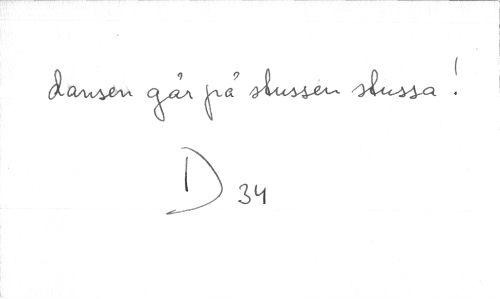 dansen går på stussen stussa!
D 34